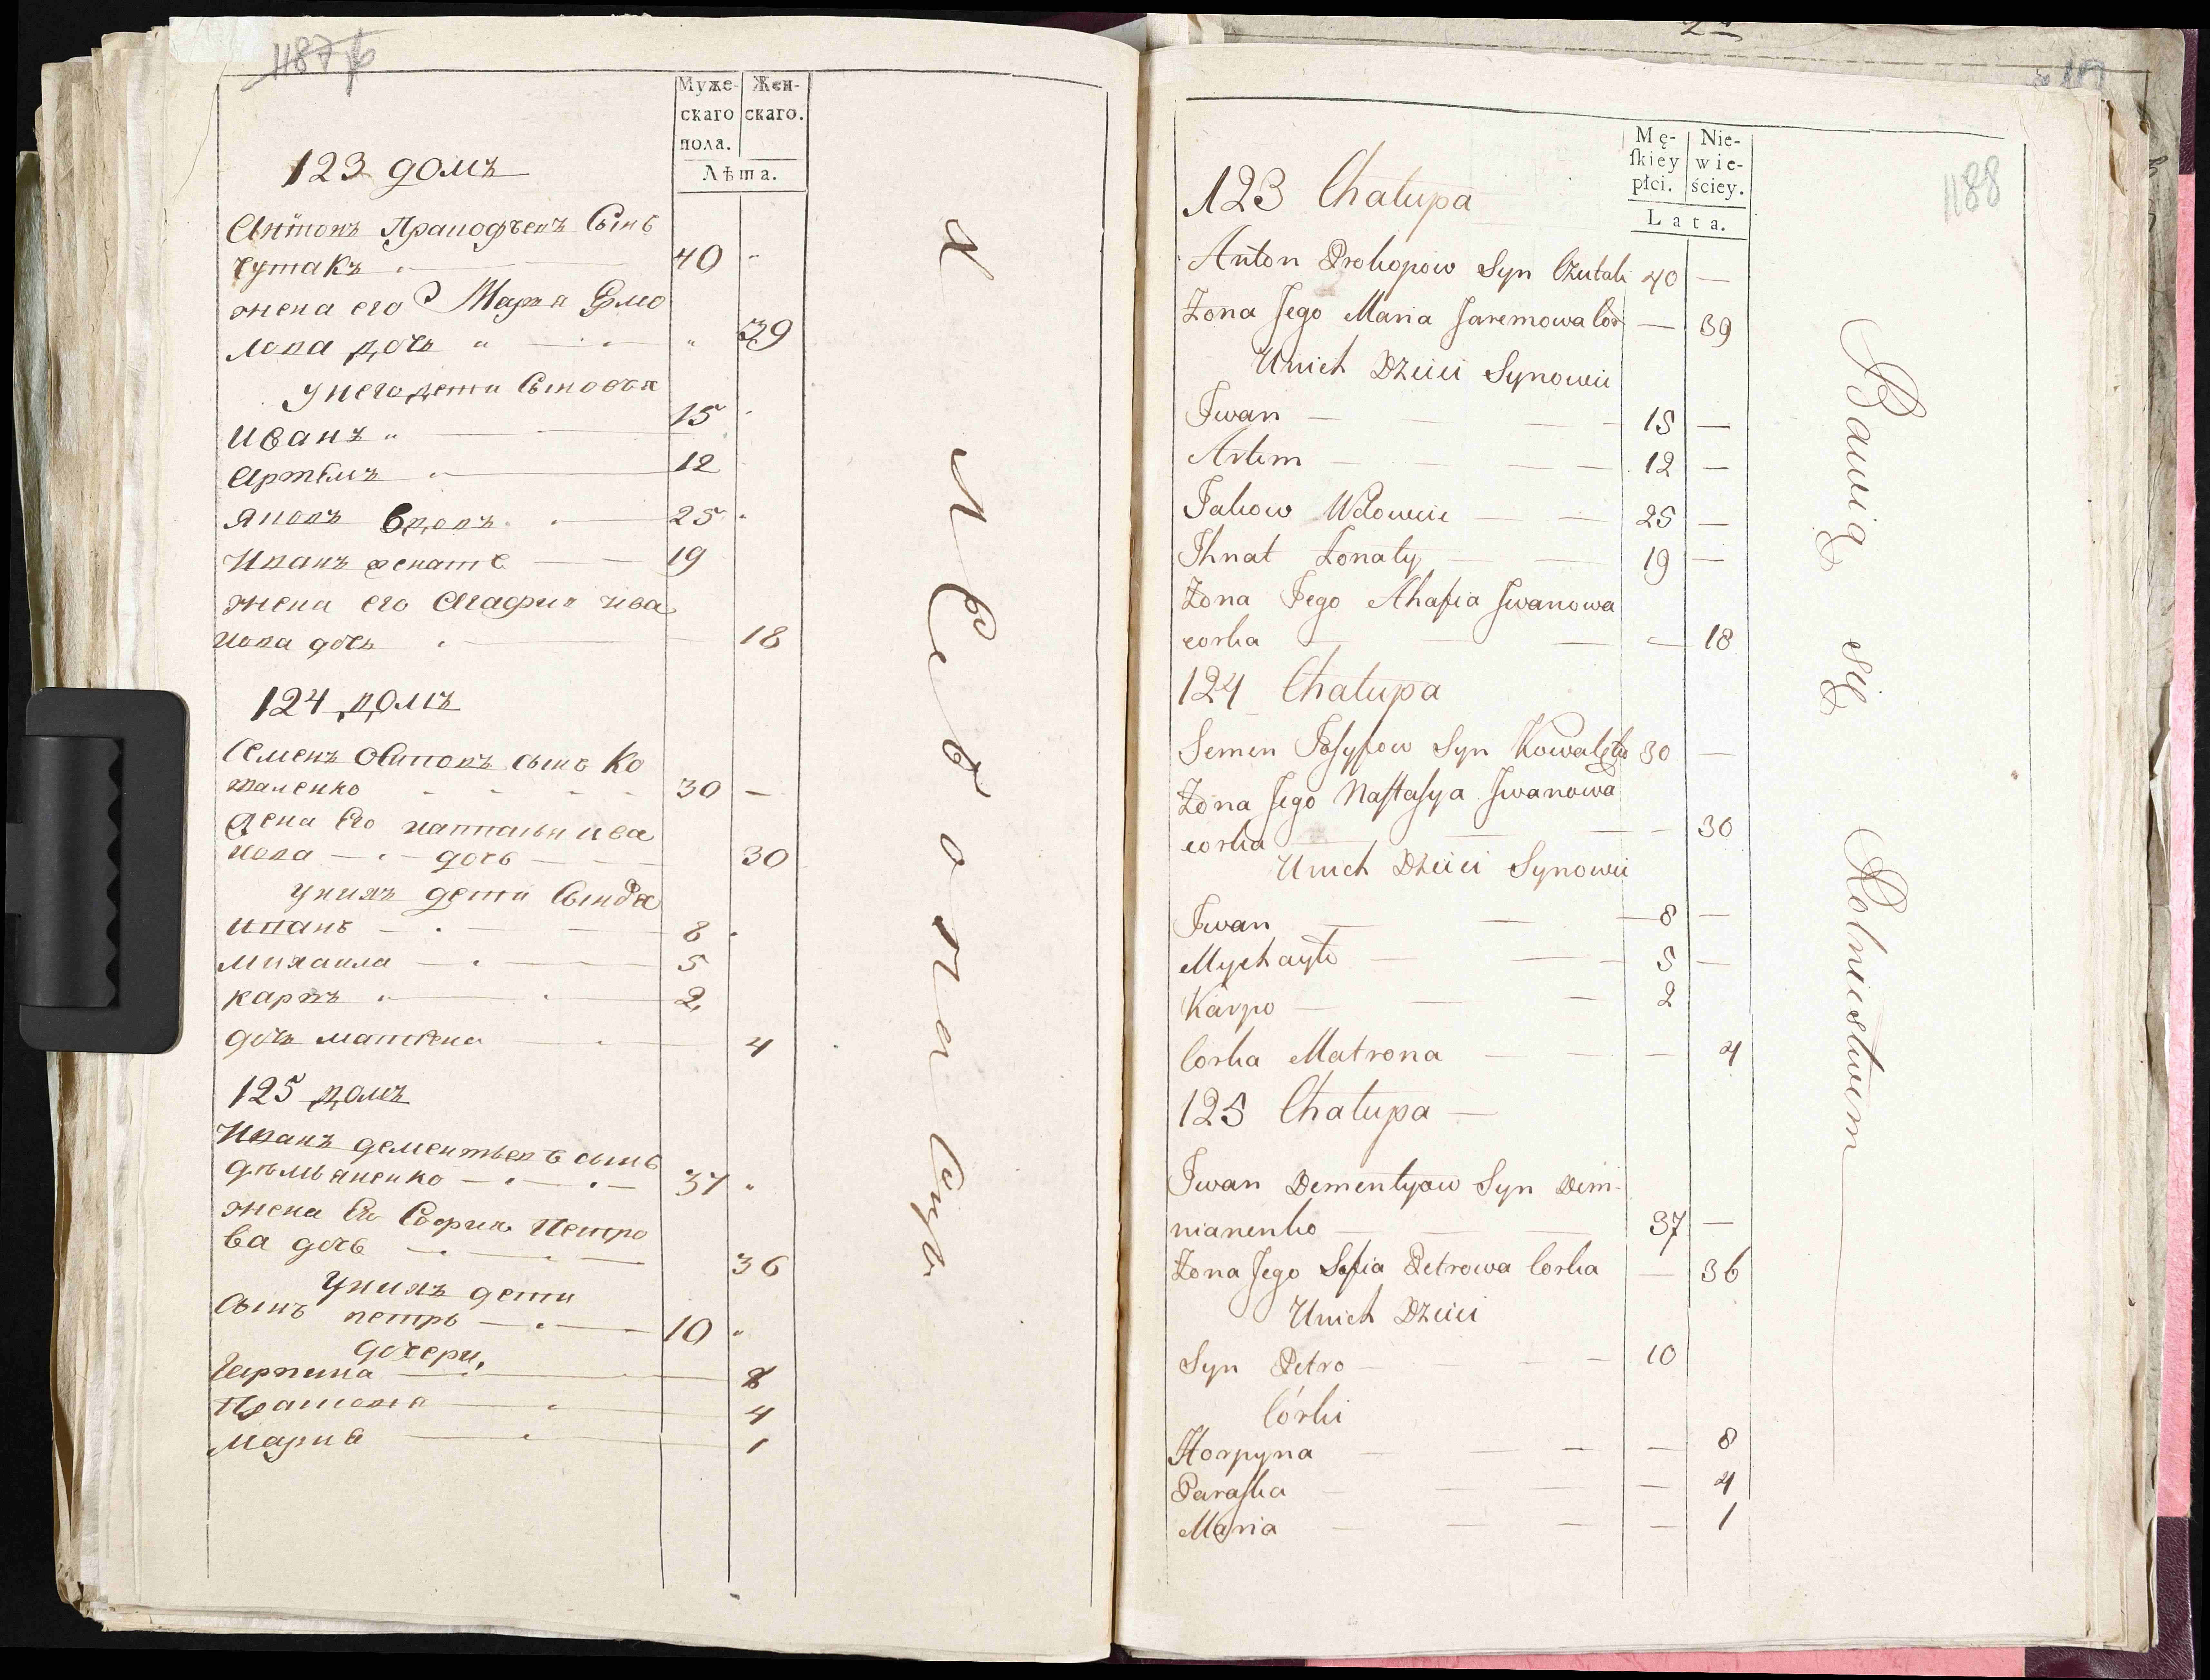 1187 об
Муже-
скаго
пола.
Жен-
скаго.
Лѣта.
123 домъ
Антонъ Прокофьевъ Сынъ
Чутакъ 40
жена его Марья Ермо
лова дочь 39
У него дети Сыновья
Иванъ 15
Артемъ 12
Яковъ вдовъ 25
Иванъ женатъ 19
жена его Агафия Ива
нова дочь 18
124 домъ
Семенъ Осиповъ сынъ Ко
валенко 30 —
жена Его наталья ива
нова дочь 30
у нихъ дети Сыновья
иванъ 8
михаила 5
карпъ 2
дочь матрена 4
125 домъ
Иванъ дементьевъ сынъ
демьяненко 37
жена Его София Петро
ва дочь 36
У нихъ дети
Сынъ петръ 10
дочери
Гарпина 8
4
Мария 1
1188
Mę-
ſkiey
płci.
Nie-
wie-
ściey.
Lata.
123 Chałupa
Anton Prokopow Syn Czutak 40 —
Żona Jego Maria Jaremowa Cor — 39
U nich Dzieci Synowie
Iwan — 15 —
Artem — 12 —
Jakow Wdowiec — 25 —
Ihnat Żonaty — 19 —
Żona Jego Ahafia Iwanowa
corka — 18
124 Chałupa
Semen Josypow Syn Kowalenko 30 —
Żona Jego Naſtaſya Iwanowa
corka — 30
U nich Dzieci Synowie
Iwan — 8 —
Mychayło — 5 —
Karpo — 2
Corka Matrona — 4
125 Chałupa —
Iwan Dementyow Syn Dem-
nianenko — 37 —
Żona Jego Sofia Petrowa Corka — 36
U nich Dzieci
Syn Petro — 10
Córki
Horpyna — 8
Paraſka — 4
Maria — 1
Bawią się Rolnictwem